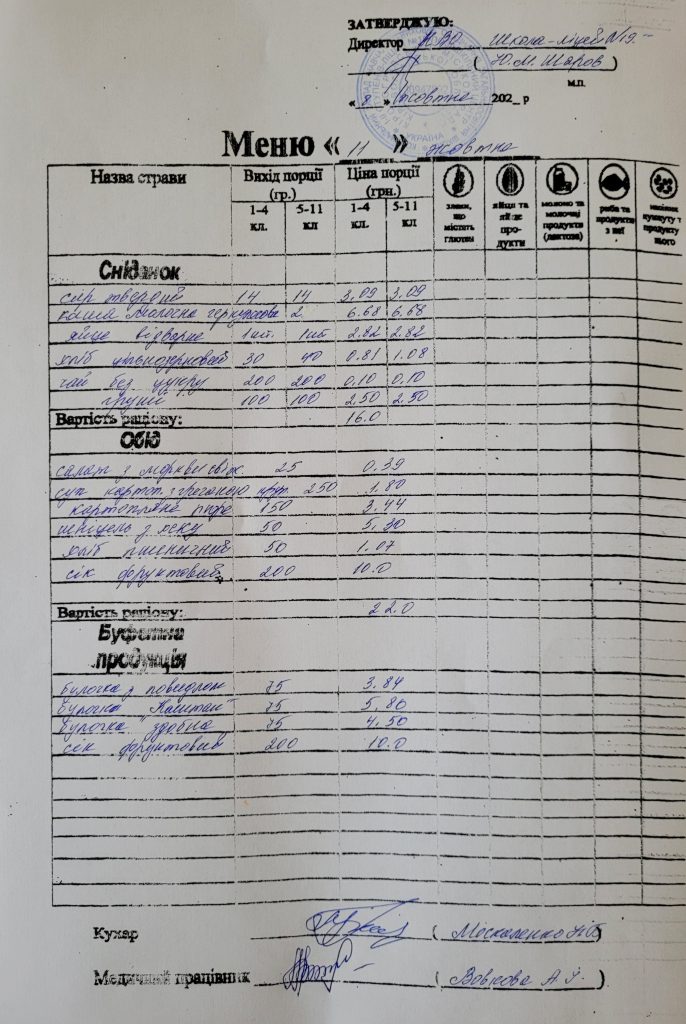 ЗАТВЕРДЖУЮ:
Директор НВО Школа-ліцей №19
( Ю.М. Шаров )
м.п.
« 8 » жовтня 202_ р
Меню « 11 » жовтня
Назва страви Вихід порції (гр.) Ціна порції (грн.)
1-4 кл. 5-11 кл 1-4 кл. 5-11 кл.
злаки, що містять глютен
яйця та продукти
молоко та молочні продукти (лактоза)
риба та продукти з неї
насіння кунжуту т продукту нього
Сніданок
сир твердий 14 14 3.09 3.09
каша молочна 6.68 6.68
яйце відварне 1шт. 1шт 2.82 2.82
хліб цільнозерновий 30 40 0.81 1.08
чай без цукру 200 200 0.10 0.10
груші 100 100 2.50 2.50
Вартість раціону: 16.0
Обід
салат з моркви свіж. 25 0.39
суп картоп. з гречаною круп. 250 1.80
картопляне пюре 150 3.44
шніцель з 50 5.30
хліб пшеничний 50 1.07
сік фруктовий 200 10.0
Вартість раціону: 22.0
Буфетна продукція
булочка з повидлом 75 3.84
булочка "Каштан" 75 5.80
булочка здобна 75 4.50
сік фруктовий 200 10.0
Кухар ( Москаленко )
Медичний працівник ( Вовкова А. )